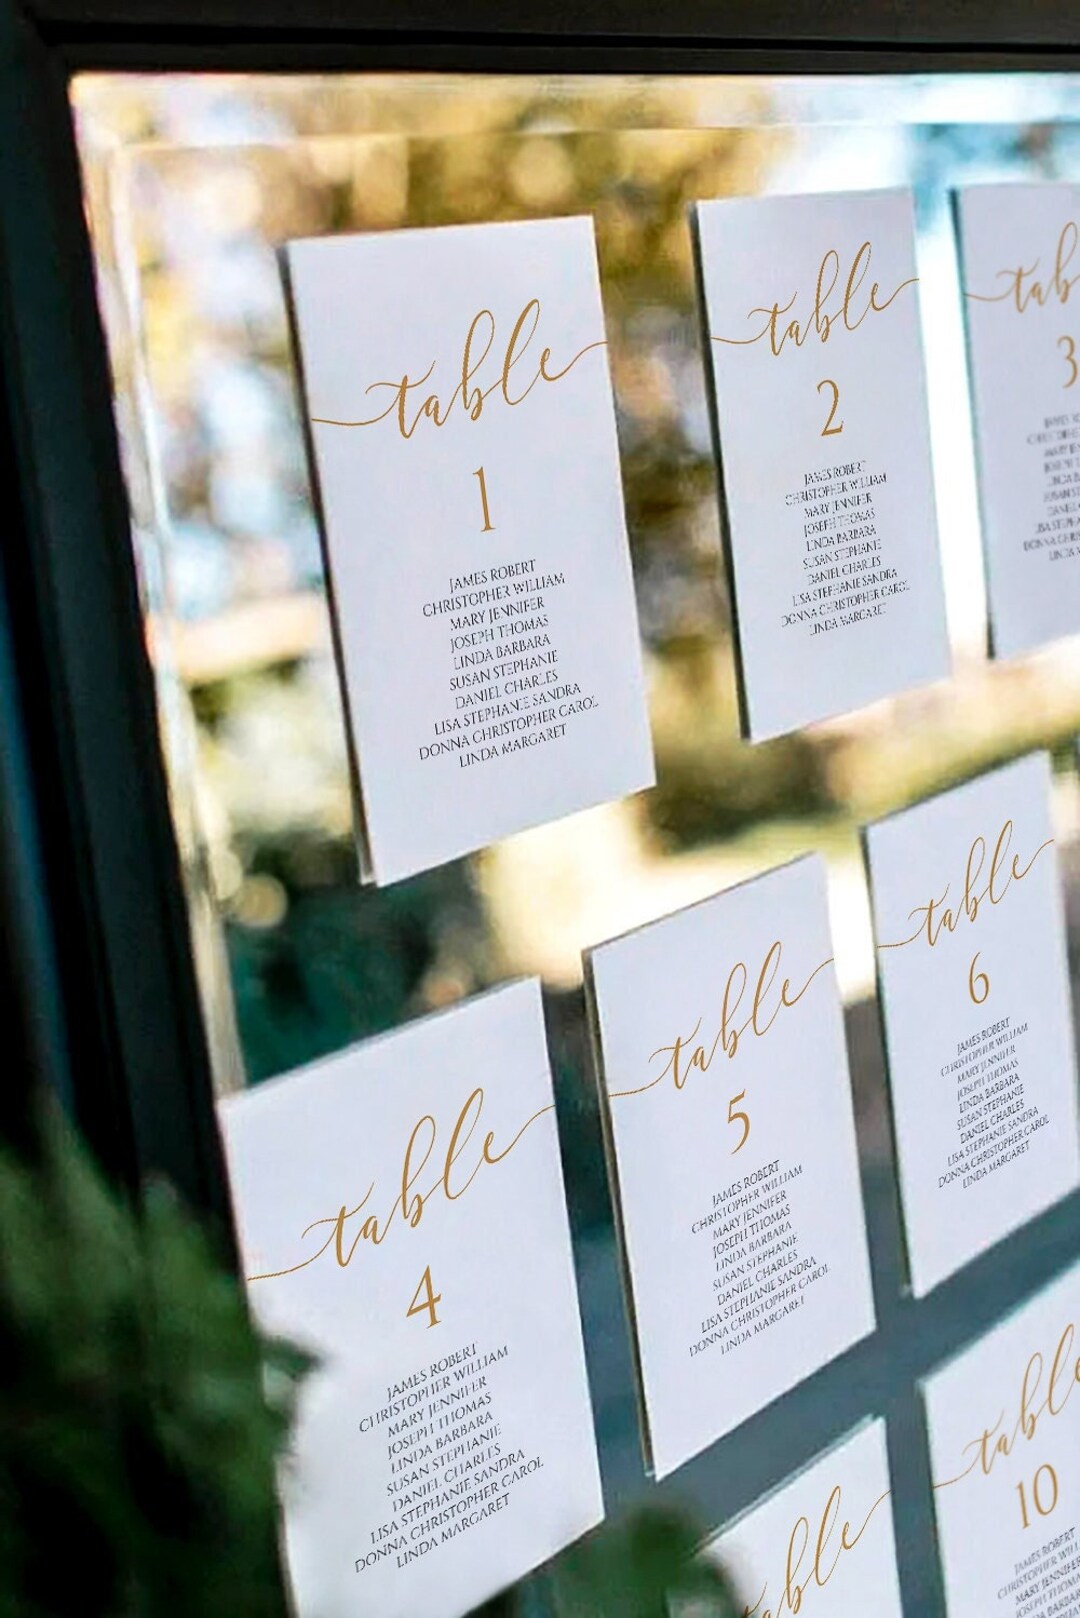 table
1
JAMES ROBERT
CHRISTOPHER WILLIAM
MARY JENNIFER
JOSEPH THOMAS
LINDA BARBARA
SUSAN STEPHANIE
DANIEL CHARLES
LISA STEPHANIE SANDRA
DONNA CHRISTOPHER CAROL
LINDA MARGARET
table
2
JAMES ROBERT
CHRISTOPHER WILLIAM
MARY JENNIFER
JOSEPH THOMAS
LINDA BARBARA
SUSAN STEPHANIE
DANIEL CHARLES
LISA STEPHANIE SANDRA
DONNA CHRISTOPHER CAROL
LINDA MARGARET
tab
3
JAMES
MARY
JOSEPH
LINDA
SUSAN
DANIEL
LISA
DONNA
LINDA
table
4
JAMES ROBERT
CHRISTOPHER WILLIAM
MARY JENNIFER
JOSEPH THOMAS
LINDA BARBARA
SUSAN STEPHANIE
DANIEL CHARLES
LISA STEPHANIE SANDRA
DONNA CHRISTOPHER CAROL
LINDA MARGARET
table
5
JAMES ROBERT
CHRISTOPHER WILLIAM
MARY JENNIFER
JOSEPH THOMAS
LINDA BARBARA
SUSAN STEPHANIE
DANIEL CHARLES
LISA STEPHANIE SANDRA
DONNA CHRISTOPHER CAROL
LINDA MARGARET
table
6
JAMES ROBERT
CHRISTOPHER WILLIAM
MARY JENNIFER
JOSEPH THOMAS
LINDA BARBARA
SUSAN STEPHANIE
DANIEL CHARLES
LISA STEPHANIE SANDRA
DONNA CHRISTOPHER CAROL
LINDA MARGARET
table
table
10
JAMES ROBERT
CHRISTOPHER WILL
MARY JENNIFER
JOSEPH THOMAS